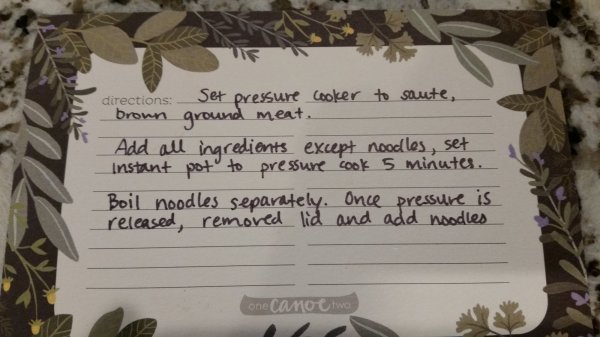 directions: Set pressure cooker to saute,
brown ground meat.
Add all ingredients except noodles, set
instant pot to pressure cook 5 minutes.
Boil noodles separately. Once pressure is
released, removed lid and add noodles
one canoe two